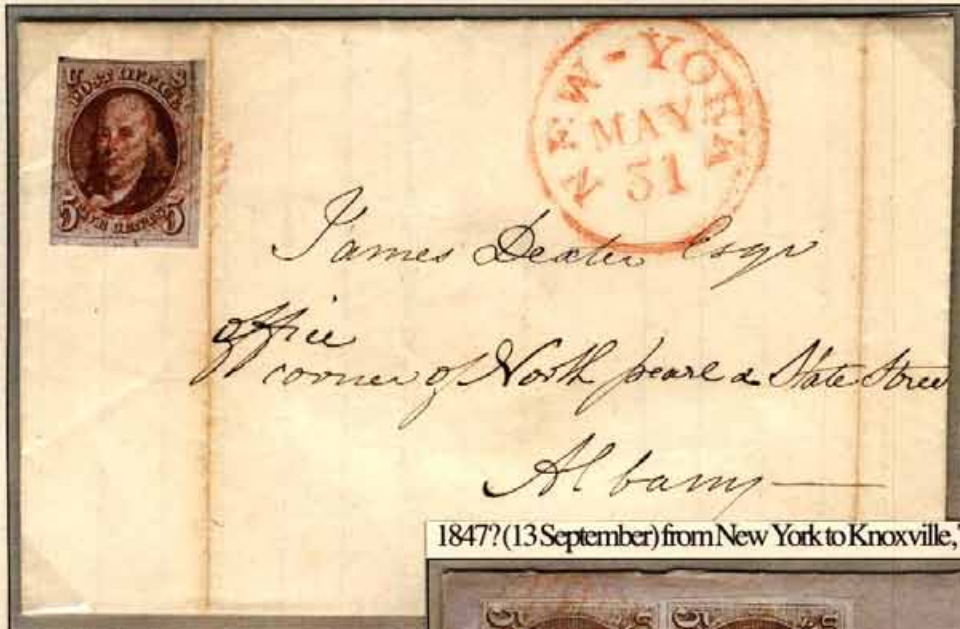 U S
POST OFFICE
5 FIVE CENTS 5
NEW-YORK
MAY
31
James Dexter Esqr
office
corner of North pearl & State Street
Albany
1847? (13 September) from New York to Knoxville,